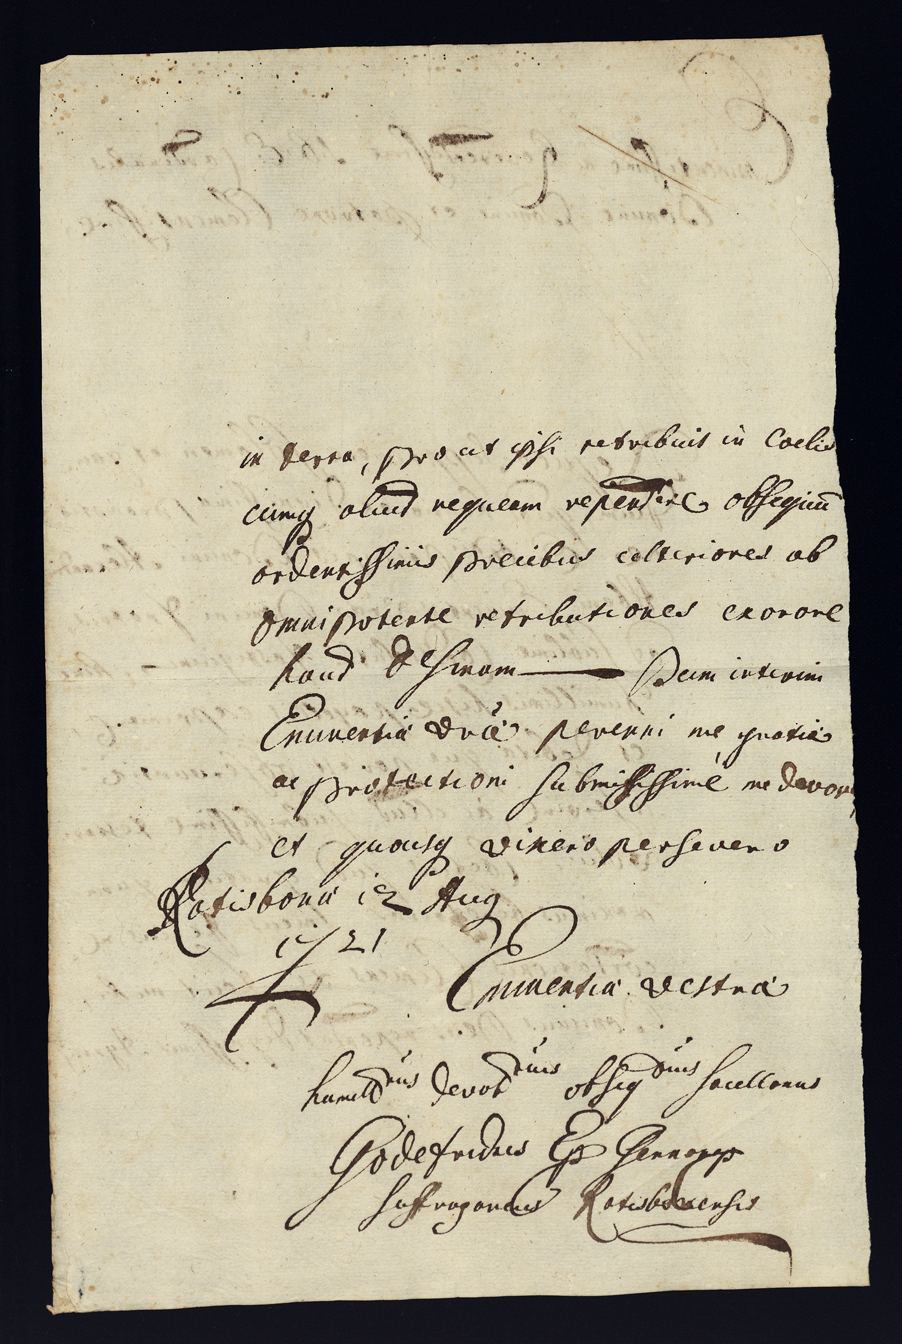 in terra, prout ipsi retribuit in Coelis
cumq aliud nequeam rependere obsequiū
ardentissimis precibus ulteriores ab
omnipotente retributiones exorare
haud desinam — Dum interim
Eminentiæ vræ perenni me gratiæ
ac protectioni submississime me devov
et quousq vixero persevero
Ratisbonæ 12 Aug
1721
Eminentiæ vestræ
humillmus devotmus obseqmus sacellanus
Godefridus Ep
Suffraganeus Ratisbonensis